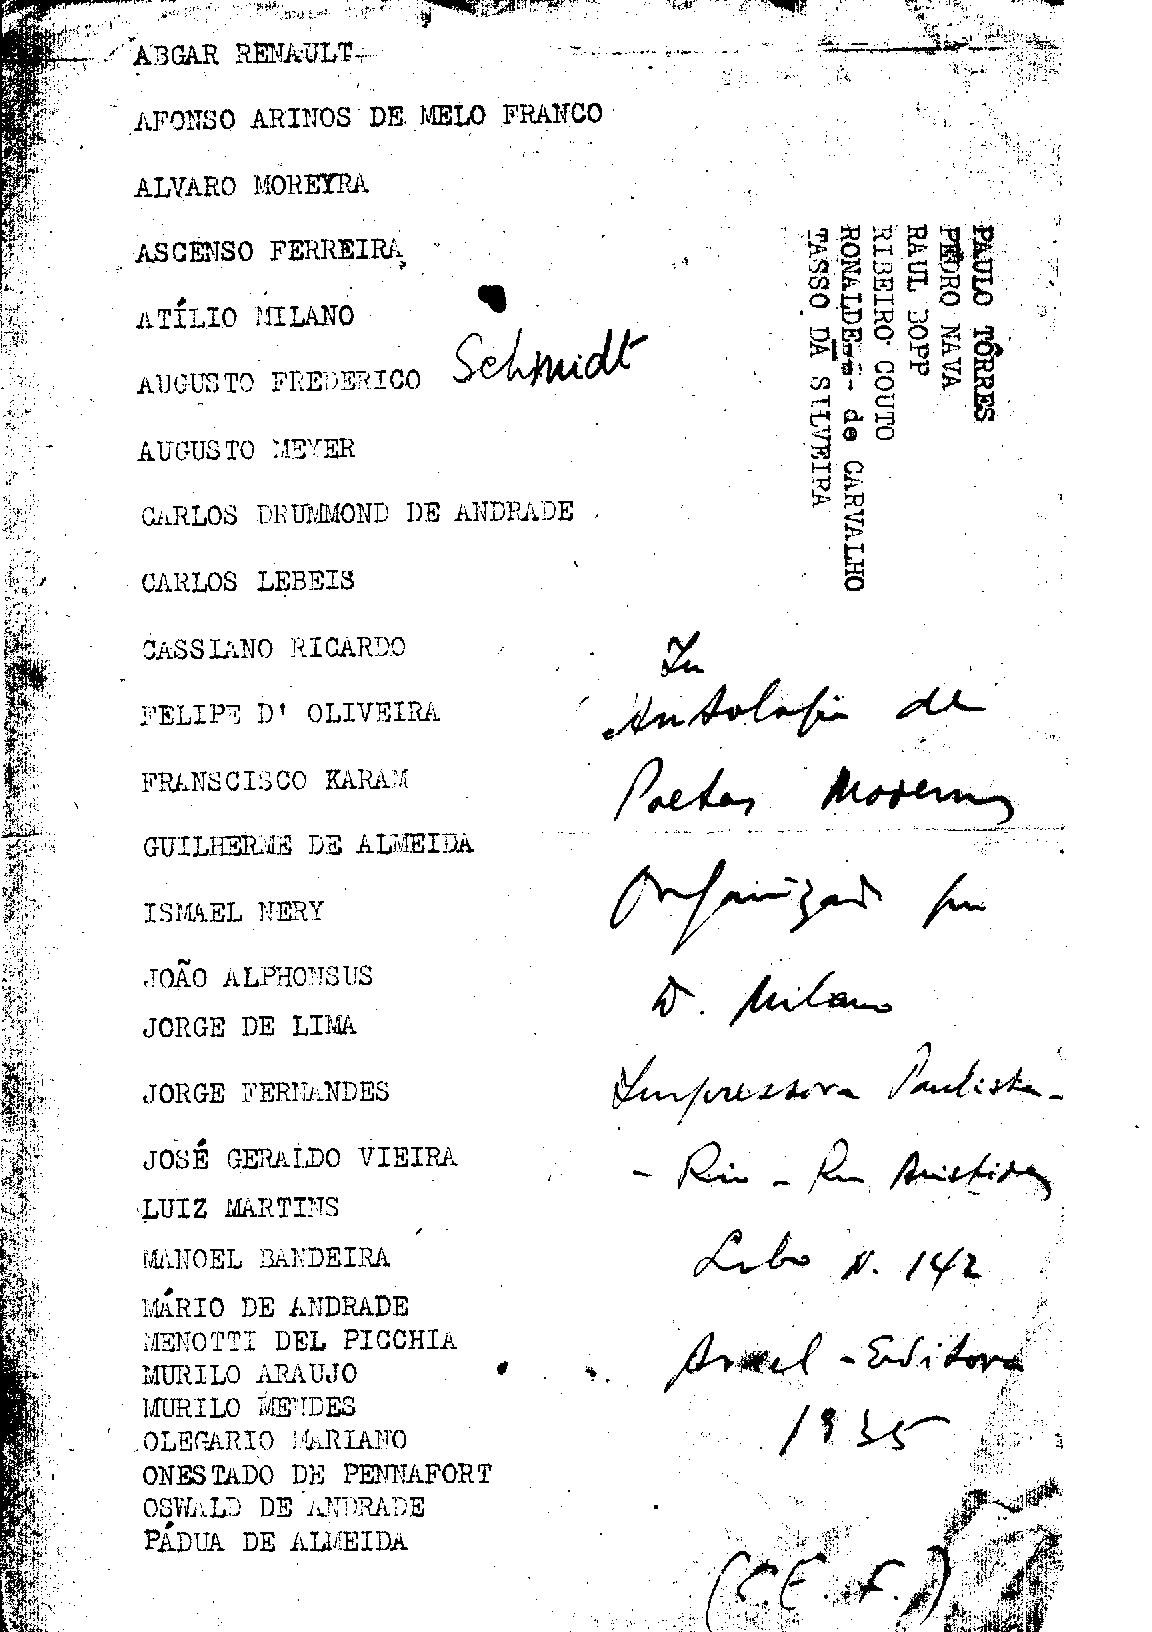 ABGAR RENAULT
AFONSO ARINOS DE MELO FRANCO
ALVARO MOREYRA
ASCENSO FERREIRA
ATÍLIO MILANO
AUGUSTO FREDERICO Schmidt
AUGUSTO MEYER
CARLOS DRUMMOND DE ANDRADE
CARLOS LEBEIS
CASSIANO RICARDO
FELIPE D' OLIVEIRA
FRANSCISCO KARAM
GUILHERME DE ALMEIDA
ISMAEL NERY
JOÃO ALPHONSUS
JORGE DE LIMA
JORGE FERNANDES
JOSÉ GERALDO VIEIRA
LUIZ MARTINS
MANOEL BANDEIRA
MÁRIO DE ANDRADE
MENOTTI DEL PICCHIA
MURILO ARAUJO
MURILO MENDES
OLEGARIO MARIANO
ONESTADO DE PENNAFORT
OSWALD DE ANDRADE
PÁDUA DE ALMEIDA
PAULO TÔRRES
PEDRO NAVA
RAUL BOPP
RIBEIRO COUTO
RONALDE de CARVALHO
TASSO DA SILVEIRA
In
Antologia de
Poetas Modernos
Organizad por
D. Milano
Impressora Paulista -
- Rio - Rua Aristides
Lobo N. 142
Ariel - Editora
1935